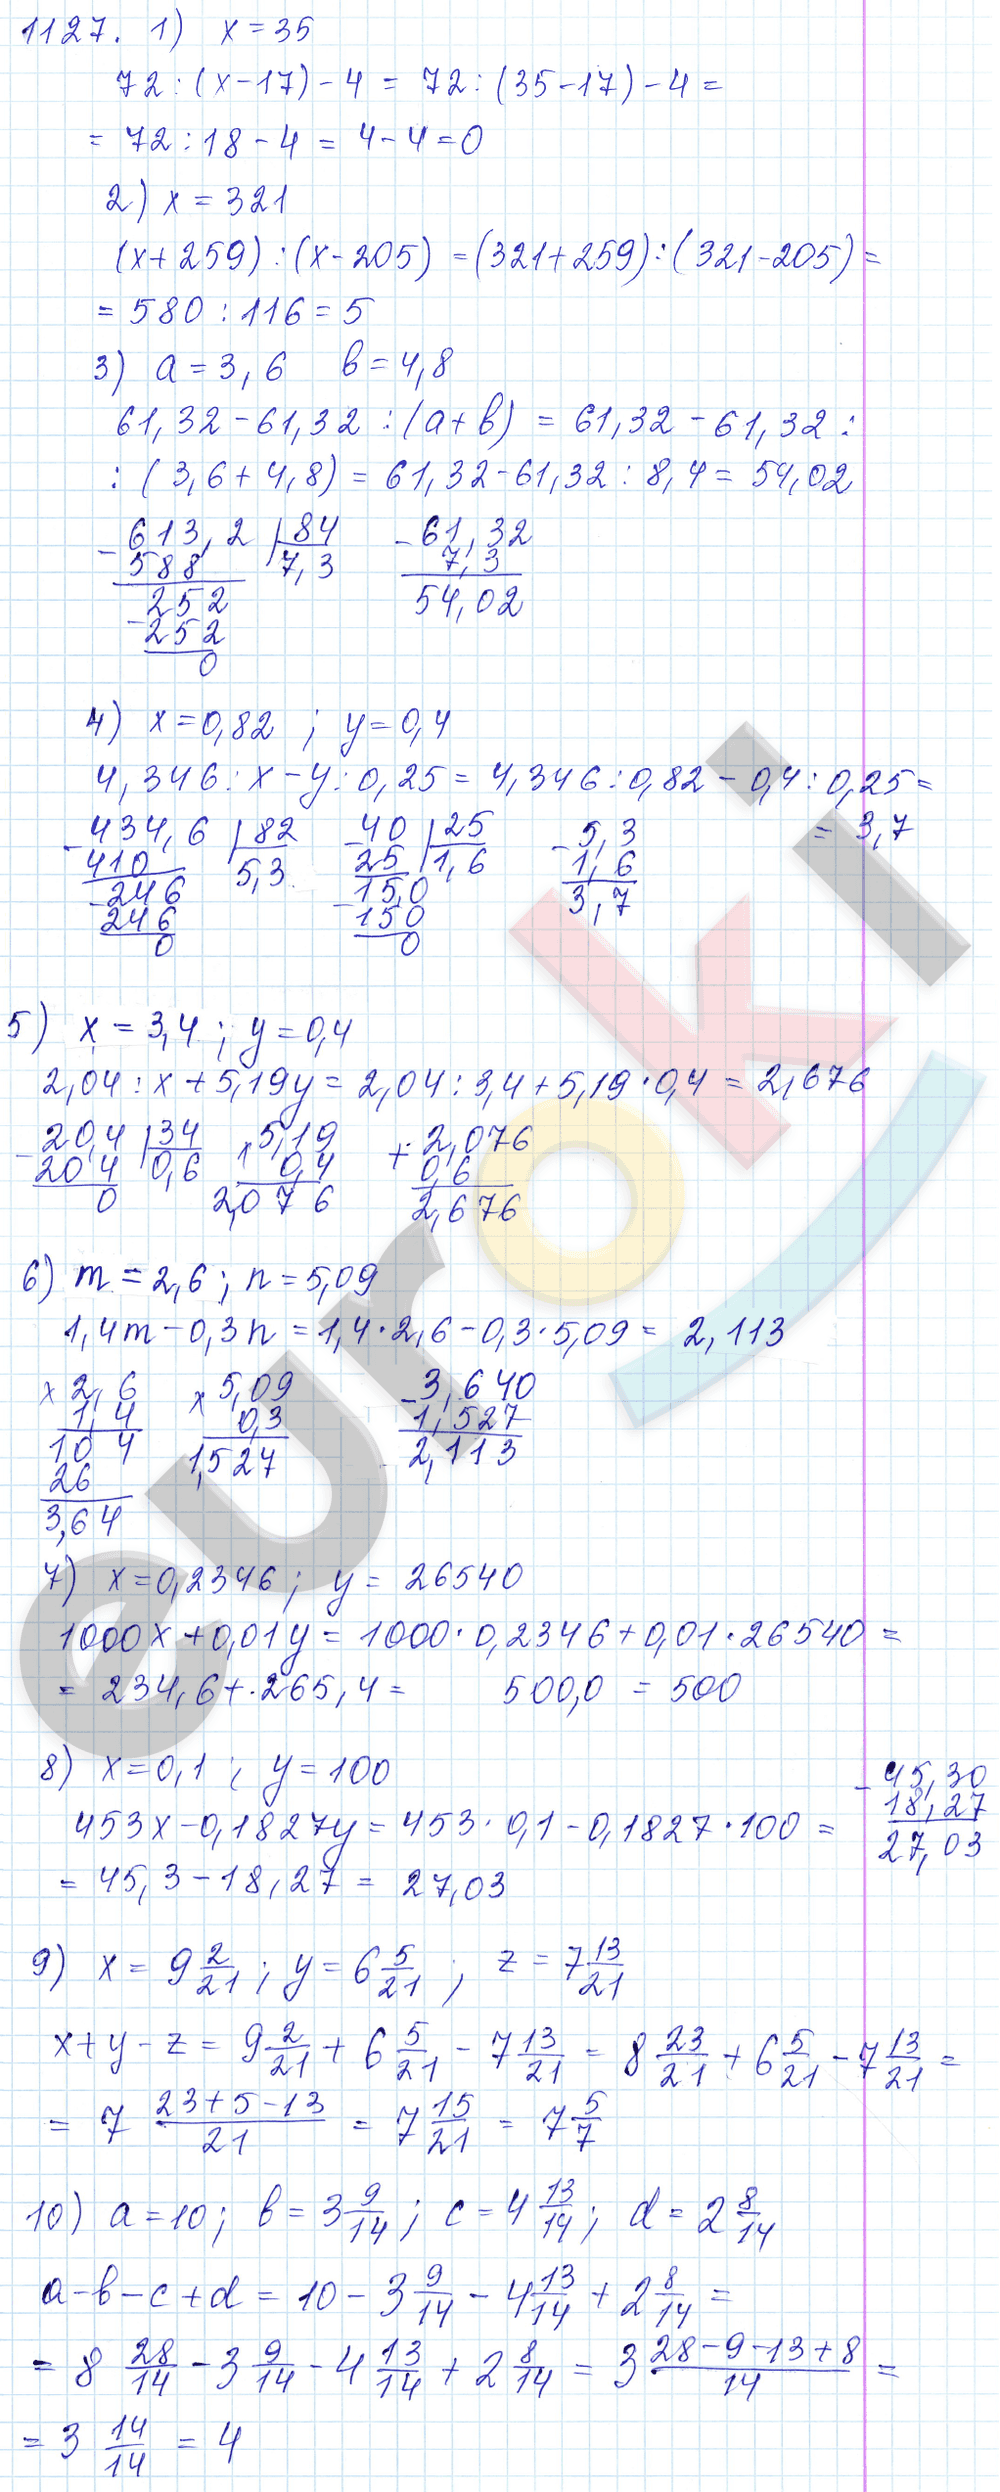 1127. 1) x = 35
72 : (x − 17) − 4 = 72 : (35 − 17) − 4 =
= 72 : 18 − 4 = 4 − 4 = 0
2) x = 321
(x + 259) : (x − 205) = (321 + 259) : (321 − 205) =
= 580 : 116 = 5
3) a = 3,6 b = 4,8
61,32 − 61,32 : (a + b) = 61,32 − 61,32 :
: (3,6 + 4,8) = 61,32 − 61,32 : 8,4 = 54,02
−613,2 | 84 −61,32
588 7,3 7,3
−252 54,02
252
0
4) x = 0,82 ; y = 0,4
4,346 : x − y : 0,25 = 4,346 : 0,82 − 0,4 : 0,25 =
−434,6 | 82 −40 | 25 −5,3 = 3,7
410 5,3 25 1,6 1,6
−246 −15,0 3,7
246 150
0 0
5) x = 3,4 ; y = 0,4
2,04 : x + 5,19y = 2,04 : 3,4 + 5,19 · 0,4 = 2,676
−20,4 | 34 × 5,19 + 2,076
20 4 0,6 0,4 0,6
0 2,0 7 6 2,676
6) m = 2,6 ; n = 5,09
1,4m − 0,3n = 1,4 · 2,6 − 0,3 · 5,09 = 2,113
× 2,6 × 5,09 −3,640
1,4 0,3 1,527
10 4 1,527 2,113
26
3,64
7) x = 0,2346 ; y = 26540
1000x + 0,01y = 1000 · 0,2346 + 0,01 · 26540 =
= 234,6 + 265,4 = 500,0 = 500
8) x = 0,1 ; y = 100 − 45,30
18,27
453x − 0,1827y = 453 · 0,1 − 0,1827 · 100 = 27,03
= 45,3 − 18,27 = 27,03
9) x = 9 2/21 ; y = 6 5/21 ; z = 7 13/21
x + y − z = 9 2/21 + 6 5/21 − 7 13/21 = 8 23/21 + 6 5/21 − 7 13/21 =
= 7 (23 + 5 − 13)/21 = 7 15/21 = 7 5/7
10) a = 10 ; b = 3 9/14 ; c = 4 13/14 ; d = 2 8/14
a − b − c + d = 10 − 3 9/14 − 4 13/14 + 2 8/14 =
= 8 28/14 − 3 9/14 − 4 13/14 + 2 8/14 = 3 (28 − 9 − 13 + 8)/14 =
= 3 14/14 = 4
euroki